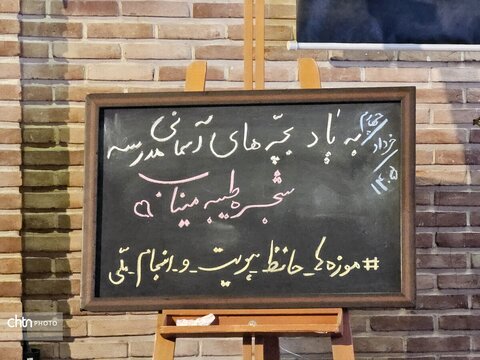 به یاد بچّه های آسمانی مدرسه
شجره طیبه میناب
#موزه_ها_حافظ_هویت_و_انجام_ملّی
چهارم
خرداد
۱۴۰۵
chtn PHOTO